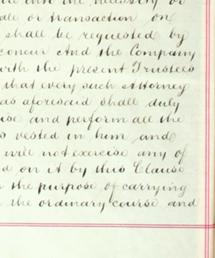 into the necessity or
sale or transaction on
shall be requested by
concur And the Company
with the present Trustees
that every such Attorney
as aforesaid shall duly
ise and perform all the
s vested in him and
will not exercise any of
d on it by this Clause
the purpose of carrying
the ordinary course and